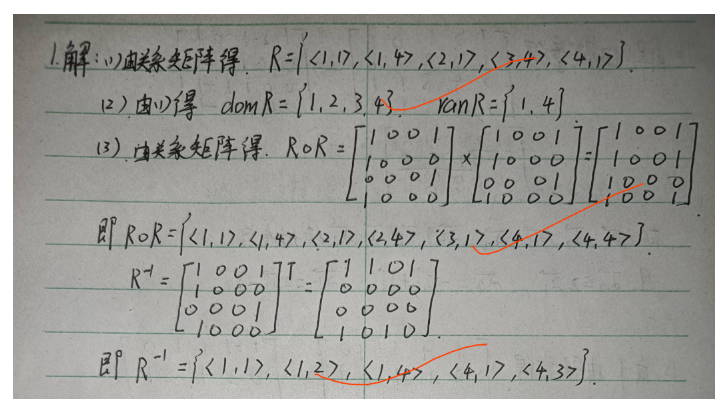 1.解:(1)由关系矩阵得. R={<1,1>,<1,4>,<2,1>,<3,4>,<4,1>}.
(2)由(1)得 domR={1,2,3,4}. ranR={1,4}
(3).由关系矩阵得. R∘R=[1 0 0 1; 1 0 0 0; 0 0 0 1; 1 0 0 0]×[1 0 0 1; 1 0 0 0; 0 0 0 1; 1 0 0 0]=[1 0 0 1; 1 0 0 1; 1 0 0 0; 1 0 0 1]
即 R∘R={<1,1>,<1,4>,<2,1>,<2,4>,<3,1>,<4,1>,<4,4>}.
R⁻¹=[1 0 0 1; 1 0 0 0; 0 0 0 1; 1 0 0 0]ᵀ=[1 1 0 1; 0 0 0 0; 0 0 0 0; 1 0 1 0].
即 R⁻¹={<1,1>,<1,2>,<1,4>,<4,1>,<4,3>}.